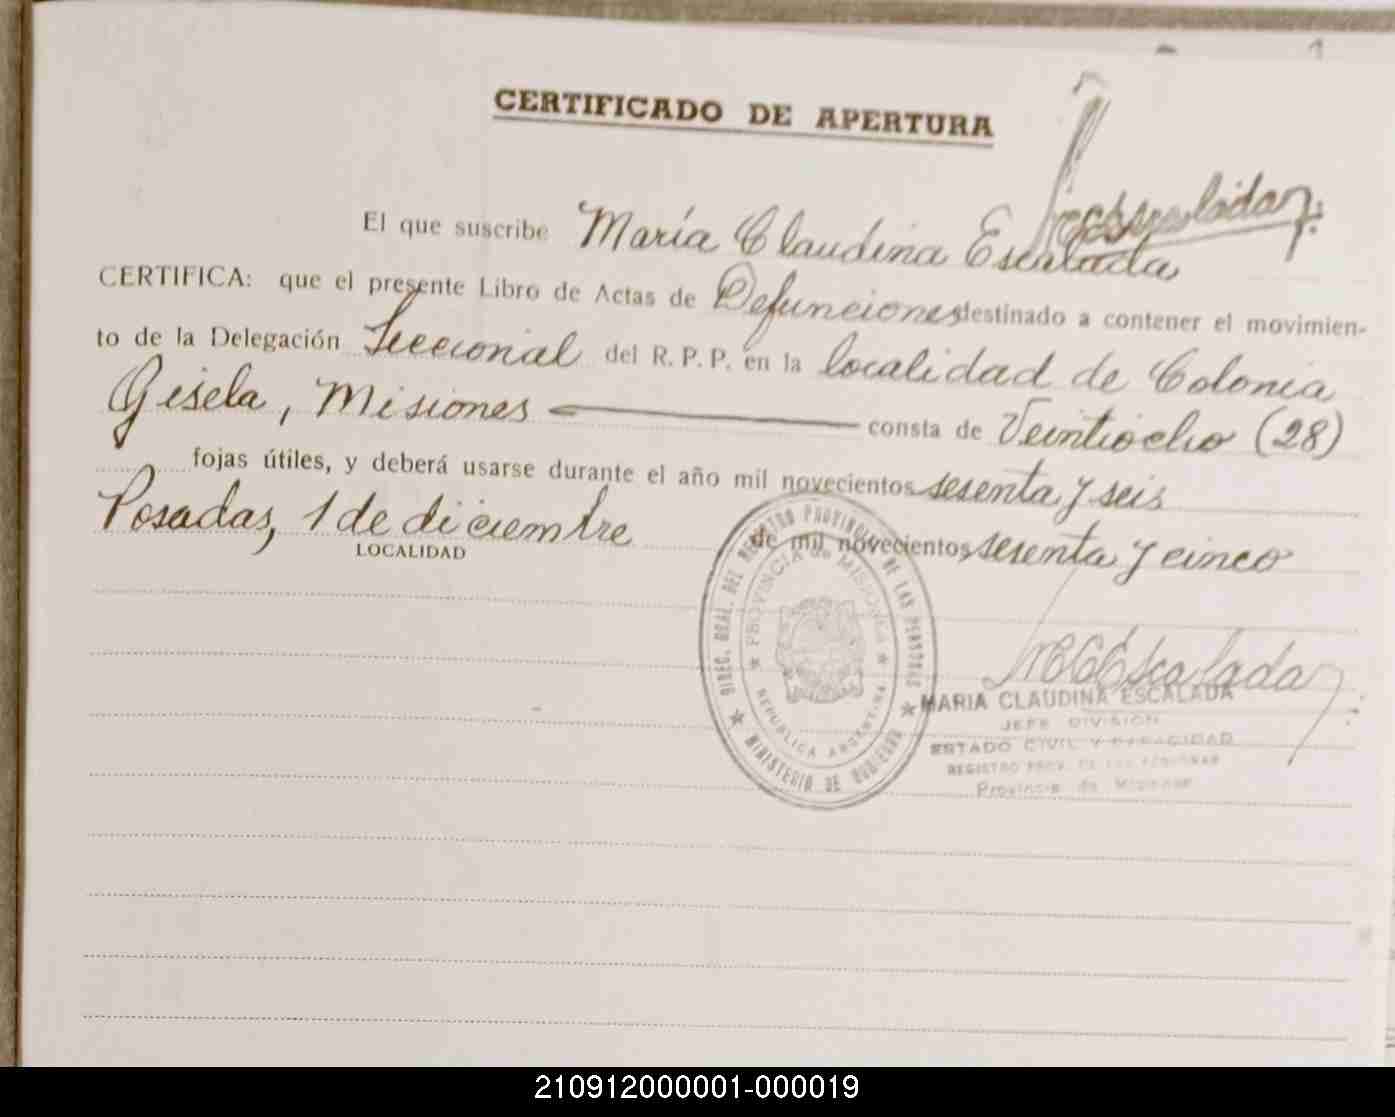 1
CERTIFICADO DE APERTURA
El que suscribe María Claudina Escalada
CERTIFICA: que el presente Libro de Actas de Defunciones destinado a contener el movimien-
to de la Delegación Seccional del R. P. P. en la localidad de Colonia
Gisela, Misiones consta de Veintiocho (28)
fojas útiles, y deberá usarse durante el año mil novecientos sesenta y seis
Posadas, 1 de diciembre de mil novecientos sesenta y cinco
LOCALIDAD
DIREC. GRAL. DEL REGISTRO PROVINCIAL DE LAS PERSONAS
PROVINCIA de MISIONES
REPUBLICA ARGENTINA
MINISTERIO DE GOBIERNO
MARIA CLAUDINA ESCALADA
JEFE DIVISION
ESTADO CIVIL Y CAPACIDAD
REGISTRO PROV. DE LAS PERSONAS
Provincia de Misiones
210912000001-000019